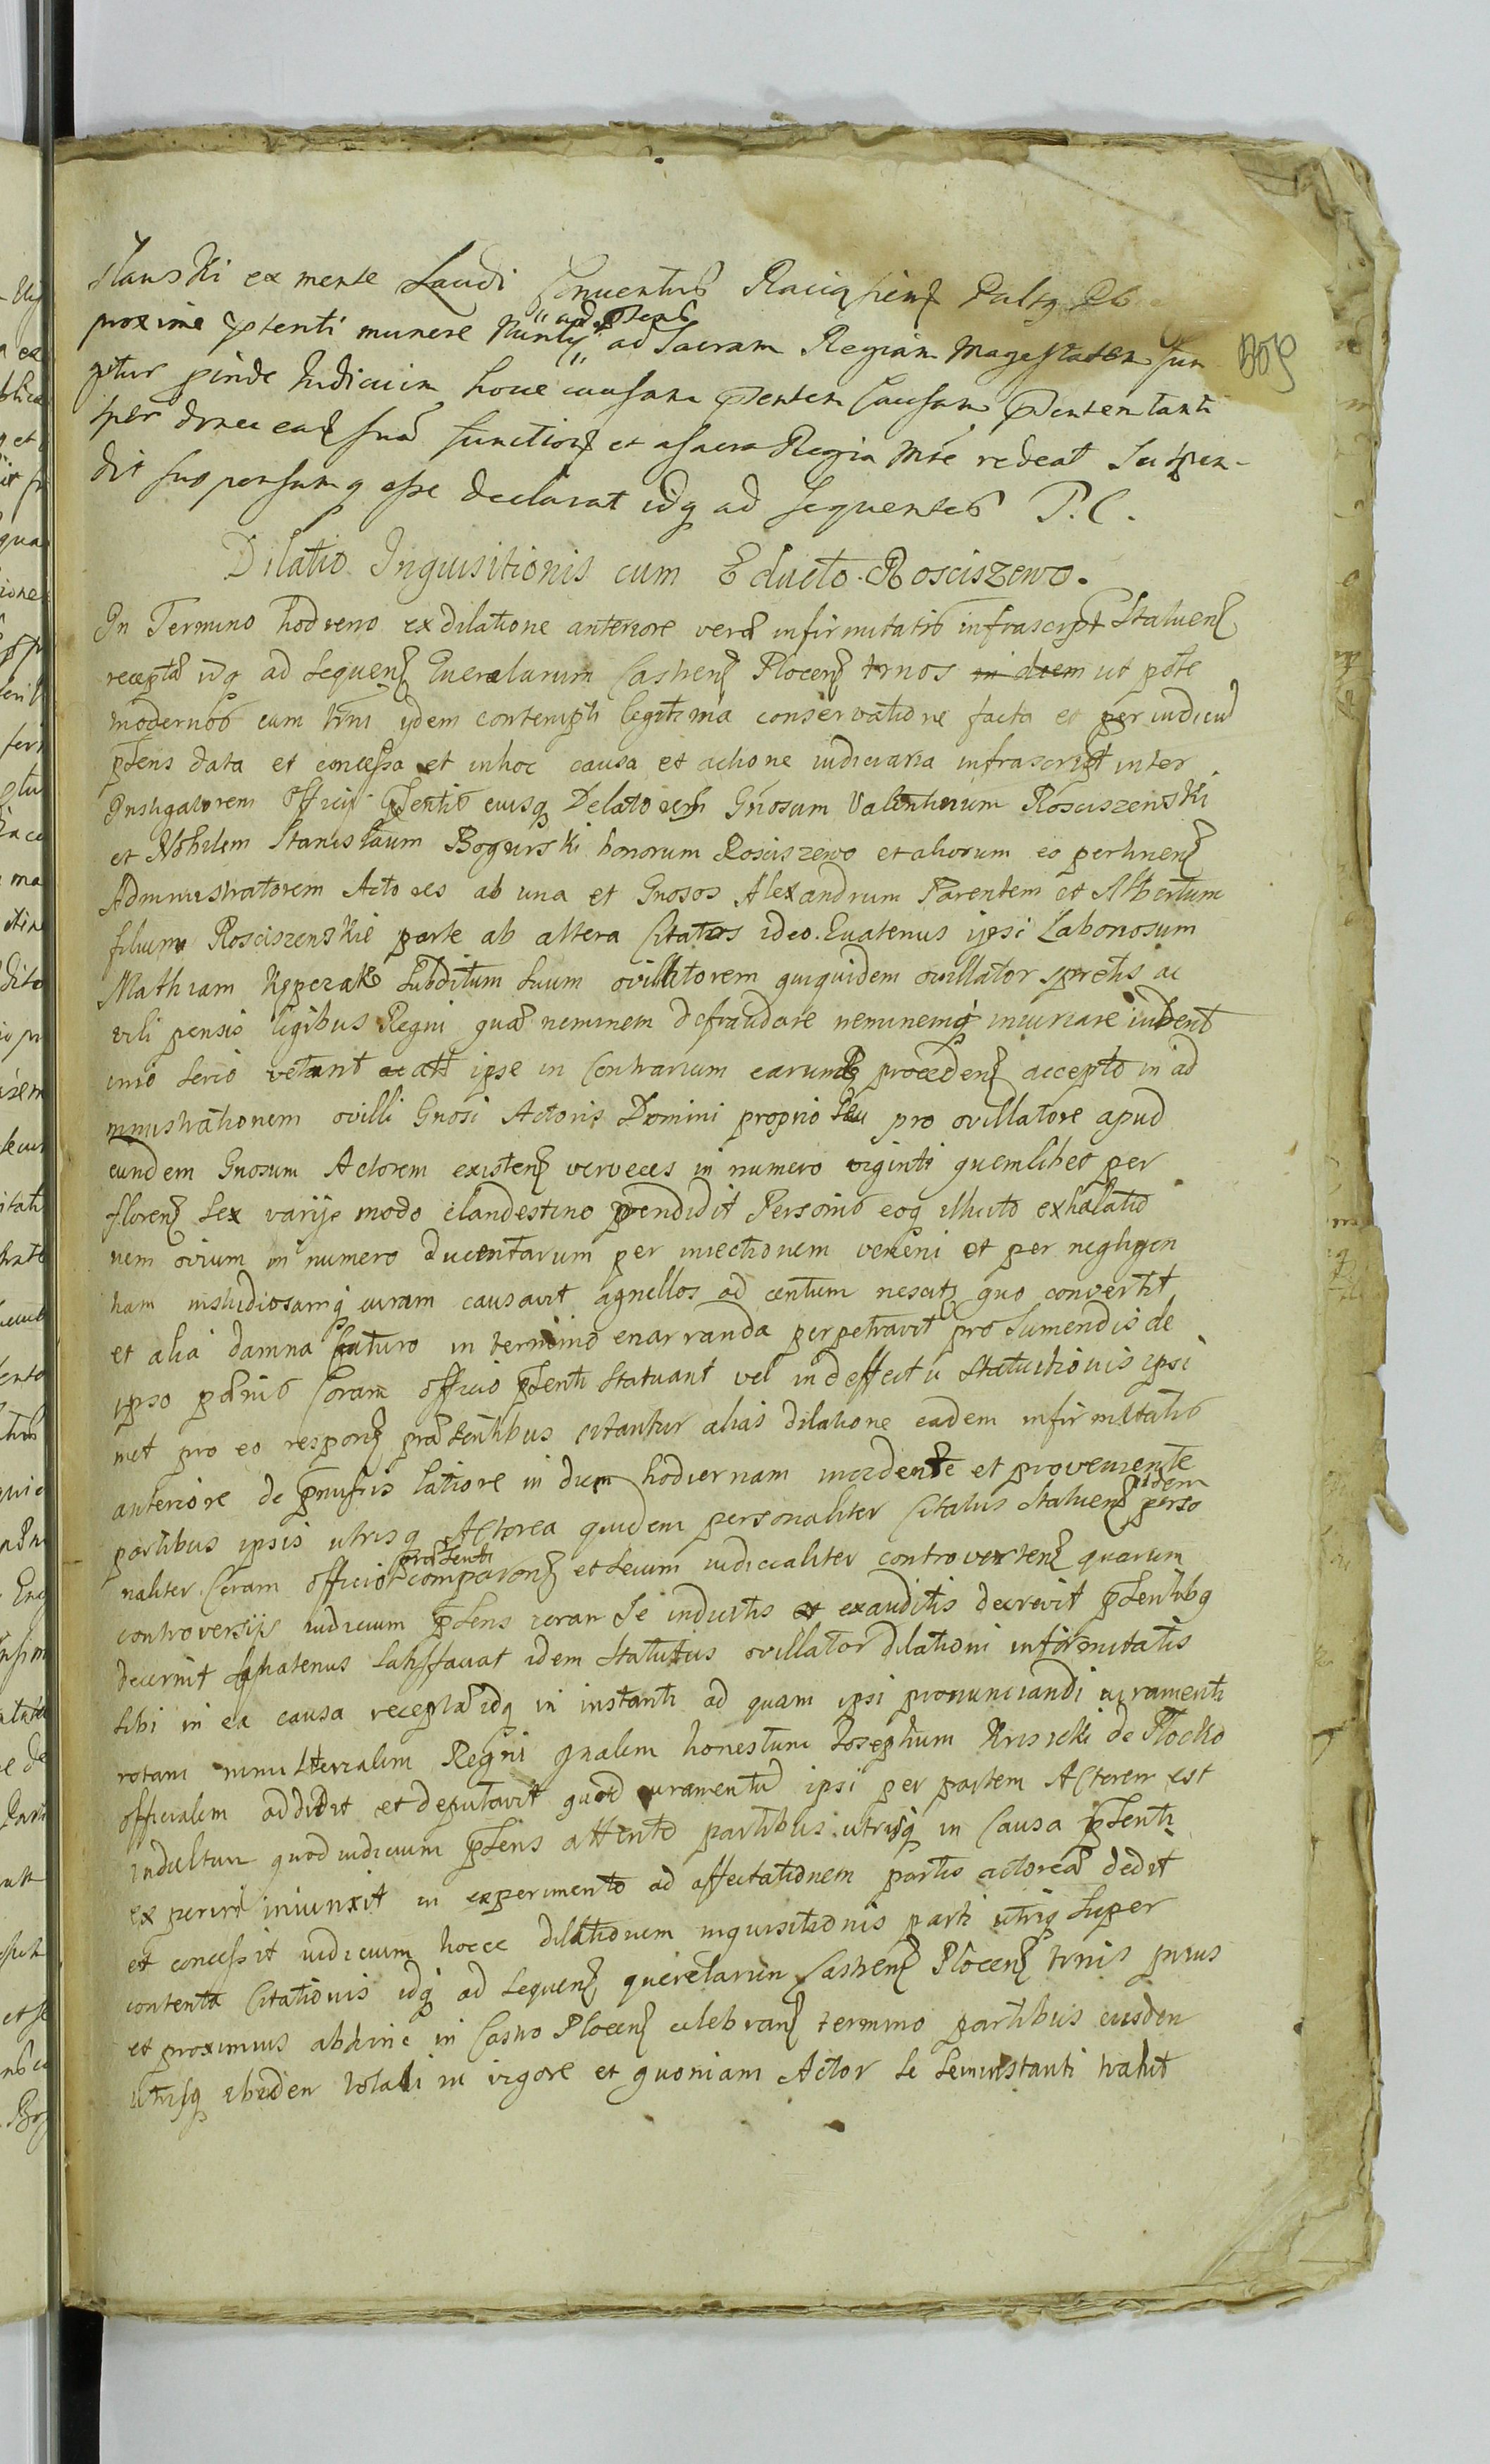 slauski ex mente Laudi Conventus Raciązienß
proxime pstenti munere Nuntij ad Sacram Regiam Magestatem fun
gitur Judicium causam Causam
donec eaq functionß et a sacra Regia Mte redeat Suspen-
dit suspensumq esse declarat idq ad sequentes P. C.
Dilatio Inquisitionis cum Educto Rosciszewo.
In Termino hodierno ex dilatione anteriore veræ infirmitatis infrascript Statuenß
recepta idq ad sequenß Querelarum Castrenß Plocenß trnos in diem ut pote
modernos cum trni ijdem contempti legitima conservatione facta et per iudiciu
pstens data et concessa et in hoc causa et actione iudiciaria infrascript inter
Instigatorem Officij pstentis eiusq Delatorem Gnosum Valentinum Rosciszenski
et Nobilem Stanislaum Bogurski bonorum Rosciszewo et aliorum eo pertinenß
Administratorem Actores ab una et Gnosos Alexandrum Parentem et Albertum
filium Rosciszenskie parte ab altera Citatos ideo. Quatenus ipsi Laboriosum
Mathiam Subditum suum ovillatorem quiquidem ovillator spretis ac
vili pensis legibus Regni quæ neminem defraudare neminemq iniuriare iubent
imo serio vetant ac att ipse in Contrarium earumq procedenß accepto in ad
ministrationem ovilli Gnosi Actoris Domini proprio seu pro ovillatore apud
eundem Gnosum Actorem existenß verveces in numero viginti quemlibet per
florenß sex varijs modo clandestino vendidit Personis eoq illicito exhalatio
nem ovium in numero ducentarum per iniectionem veneni et per negligen
tiam curam causavit agnellos ad centum nescitß quo convertit
et alia damna futuro in termino enarranda perpetravit pro sumendis de
ipso pænis Coram officio pstenti Statuant vel in deffectu Statuitionis ipsi
met pro eo responß præsentibus citantur alias dilatione eadem infirmitatis
anteriore de præmissis latiore in diem hodiernam incidente et proveniente
partibus ipsis utrisq Actorea quidem personaliter Citatus Statuenß itidem perso
naliter Coram officio præsenti comparenß et secum iudicialiter controvertenß quarum
controversijs iudicium pstens coram se inductis et exauditis decrevit pstentibq
decernit Quatenus satisfaciat idem Statutus ovillator dilationi infirmitatis
sibi in ea causa receptæ idq in instanti ad quam ipsi pronunciandi iuramenti
rotam ministerialem Regni gnalem honestum Josephum Krisicki de Plocko
officialem addidit et deputavit quod iuramentu ipsi per partem Actoream est
indultum quod iudicium pstens attento partibus utrisq in Causa pstenti
experiri iniunxit in experimento ad affectationem partis actoreæ dedit
et concessit iudicium hocce dilationem inquisitionis parti utriq super
contenta Citationis idq ad sequenß querelarum Castrenß Plocenß trnis prius
et proximius abhinc in Castro Plocenß celebranß termino partibus eisdem
utrisq ibidem totali in vigore et quoniam Actor se trahit